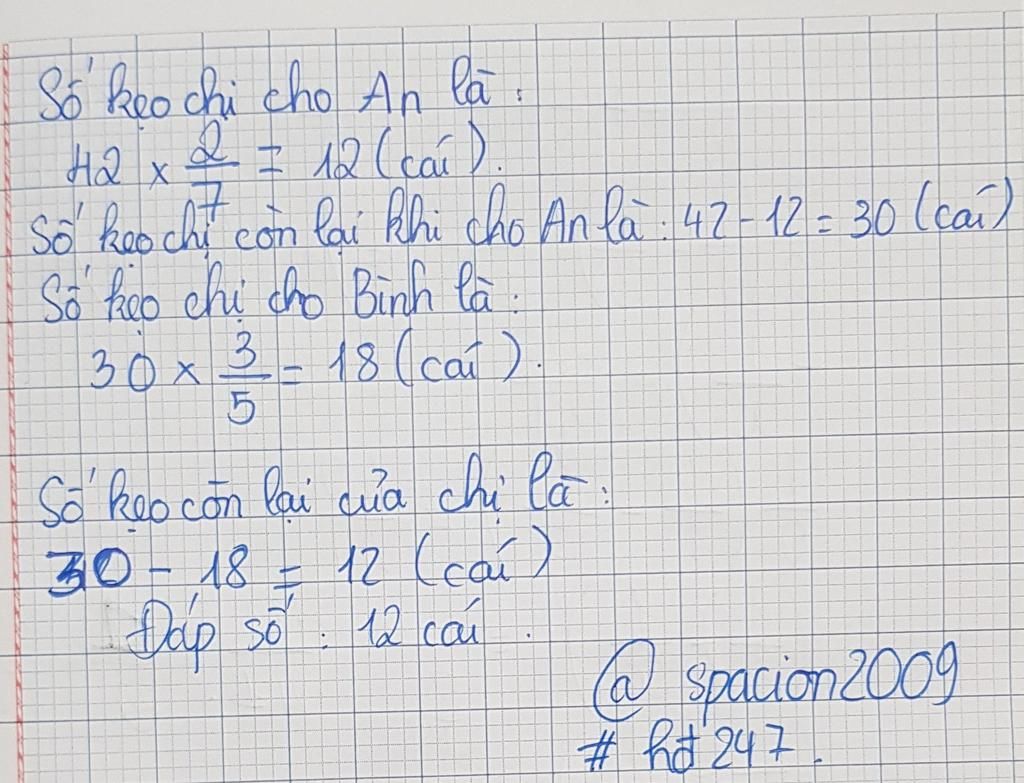 Số kẹo chị cho An là:
42 x 2/7 = 12 (cái).
Số kẹo chị còn lại khi cho An là: 42 - 12 = 30 (cái)
Số kẹo chị cho Bình là:
30 x 3/5 = 18 (cái).
Số kẹo còn lại của chị là:
30 - 18 = 12 (cái)
Đáp số: 12 cái.
@ spacion2009
# hđ247.